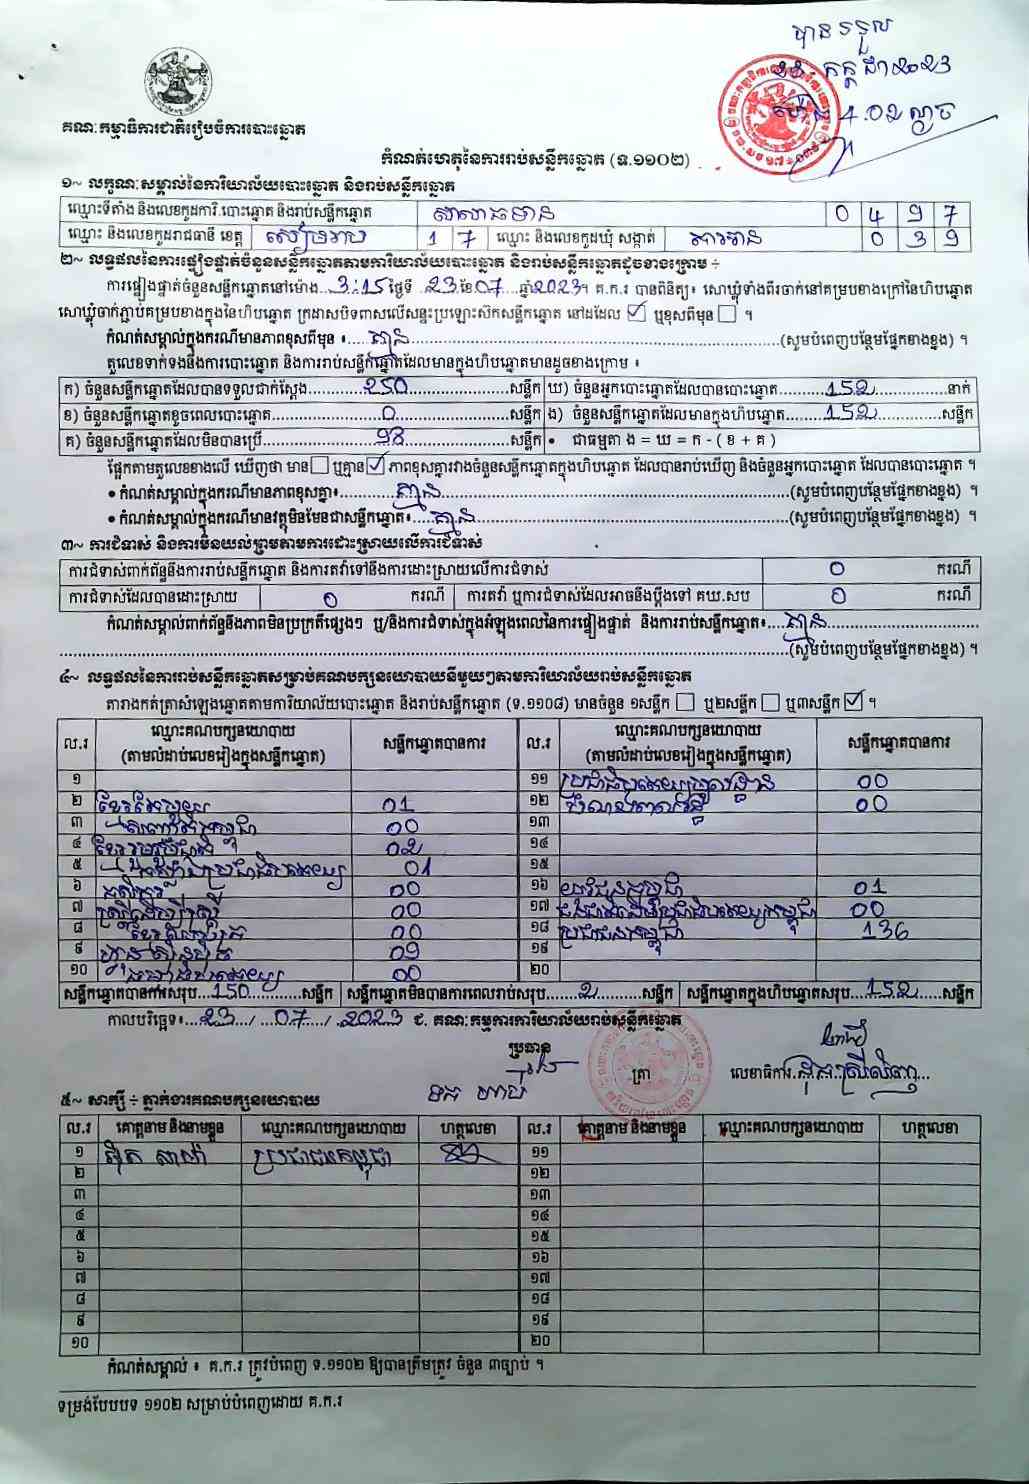 បានទទួល
23 កក្កដា 2023
ម៉ោង 4.02 ល្ងាច
គណៈកម្មាធិការជាតិរៀបចំការបោះឆ្នោត
កំណត់ហេតុនៃការរាប់សន្លឹកឆ្នោត (ទ.១១០២)
១~ លក្ខណៈសម្គាល់នៃការិយាល័យបោះឆ្នោត និងរាប់សន្លឹកឆ្នោត
ឈ្មោះទីតាំង និងលេខកូដការិ.បោះឆ្នោត និងរាប់សន្លឹកឆ្នោត 0 4 9 7
ឈ្មោះ និងលេខកូដរាជធានី ខេត្ត សៀមរាប 1 7 ឈ្មោះ និងលេខកូដឃុំ សង្កាត់ 0 3 9
២~ លទ្ធផលនៃការផ្ទៀងផ្ទាត់ចំនួនសន្លឹកឆ្នោតតាមការិយាល័យបោះឆ្នោត និងរាប់សន្លឹកឆ្នោតដូចខាងក្រោម ÷
ការផ្ទៀងផ្ទាត់ចំនួនសន្លឹកឆ្នោតនៅម៉ោង...3:15 ថ្ងៃទី..23 ខែ 07....ឆ្នាំ 2023។ គ.ក.រ បានពិនិត្យ៖ សោឃ្លុំទាំងពីរចាក់នៅគម្របខាងក្រៅនៃហិបឆ្នោត
សោឃ្លុំចាក់ភ្ជាប់គម្របខាងក្នុងនៃហិបឆ្នោត ក្រដាសបិទពាសលើសន្ទះប្រឡោះស៊កសន្លឹកឆ្នោត នៅដដែល ☑ ឬខុសពីមុន ☐ ។
កំណត់សម្គាល់ក្នុងករណីមានភាពខុសពីមុន ៖ គ្មាន (សូមបំពេញបន្ថែមផ្នែកខាងខ្នង) ។
តួលេខទាក់ទងនឹងការបោះឆ្នោត និងការរាប់សន្លឹកឆ្នោតដែលមានក្នុងហិបឆ្នោតមានដូចខាងក្រោម ៖
ក) ចំនួនសន្លឹកឆ្នោតដែលបានទទួលជាក់ស្តែង 250 សន្លឹក ឃ) ចំនួនអ្នកបោះឆ្នោតដែលបានបោះឆ្នោត 152 នាក់
ខ) ចំនួនសន្លឹកឆ្នោតខូចពេលបោះឆ្នោត 0 សន្លឹក ង) ចំនួនសន្លឹកឆ្នោតដែលមានក្នុងហិបឆ្នោត 152 សន្លឹក
គ) ចំនួនសន្លឹកឆ្នោតដែលមិនបានប្រើ 98 សន្លឹក • ជាធម្មតា ង = ឃ = ក - ( ខ + គ )
ផ្អែកតាមតួលេខខាងលើ ឃើញថា មាន ☐ ឬគ្មាន ☑ ភាពខុសគ្នារវាងចំនួនសន្លឹកឆ្នោតក្នុងហិបឆ្នោត ដែលបានរាប់ឃើញ និងចំនួនអ្នកបោះឆ្នោត ដែលបានបោះឆ្នោត ។
• កំណត់សម្គាល់ក្នុងករណីមានភាពខុសគ្នា៖ គ្មាន (សូមបំពេញបន្ថែមផ្នែកខាងខ្នង) ។
• កំណត់សម្គាល់ក្នុងករណីមានវត្ថុមិនមែនជាសន្លឹកឆ្នោត៖ គ្មាន (សូមបំពេញបន្ថែមផ្នែកខាងខ្នង) ។
៣~ ការជំទាស់ និងការមិនយល់ព្រមតាមការដោះស្រាយលើការជំទាស់
ការជំទាស់ពាក់ព័ន្ធនឹងការរាប់សន្លឹកឆ្នោត និងការតវ៉ាទៅនឹងការដោះស្រាយលើការជំទាស់ 0 ករណី
ការជំទាស់ដែលបានដោះស្រាយ 0 ករណី ការតវ៉ា ឬការជំទាស់ដែលអាចនឹងប្តឹងទៅ គឃ.សប 0 ករណី
កំណត់សម្គាល់ពាក់ព័ន្ធនឹងភាពមិនប្រក្រតីផ្សេងៗ ឬ/និងការជំទាស់ក្នុងអំឡុងពេលនៃការផ្ទៀងផ្ទាត់ និងការរាប់សន្លឹកឆ្នោត៖ គ្មាន
(សូមបំពេញបន្ថែមផ្នែកខាងខ្នង) ។
៤~ លទ្ធផលនៃការរាប់សន្លឹកឆ្នោតសម្រាប់គណបក្សនយោបាយនីមួយៗតាមការិយាល័យរាប់សន្លឹកឆ្នោត
តារាងកត់ត្រាសំឡេងឆ្នោតតាមការិយាល័យបោះឆ្នោត និងរាប់សន្លឹកឆ្នោត (ទ.១១០៨) មានចំនួន ១សន្លឹក ☐ ឬ២សន្លឹក ☐ ឬ៣សន្លឹក ☑ ។
ល.រ ឈ្មោះគណបក្សនយោបាយ (តាមលំដាប់លេខរៀងក្នុងសន្លឹកឆ្នោត) សន្លឹកឆ្នោតបានការ ល.រ ឈ្មោះគណបក្សនយោបាយ (តាមលំដាប់លេខរៀងក្នុងសន្លឹកឆ្នោត) សន្លឹកឆ្នោតបានការ
១ ១១ 00
២ 01 ១២ 00
៣ 00 ១៣
៤ ខ្មែររួបរួមជាតិ 02 ១៤
៥ 01 ១៥
៦ កសិករ 00 ១៦ យុវជនកម្ពុជា 01
៧ 00 ១៧ 00
៨ 00 ១៨ ប្រជាជនកម្ពុជា 136
៩ ហ្វ៊ុនស៊ិនប៉ិច 09 ១៩
១០ 00 ២០
សន្លឹកឆ្នោតបានការសរុប 150 សន្លឹក សន្លឹកឆ្នោតមិនបានការពេលរាប់សរុប 2 សន្លឹក សន្លឹកឆ្នោតក្នុងហិបឆ្នោតសរុប 152 សន្លឹក
កាលបរិច្ឆេទ៖ 23 / 07 / 2023 ជ. គណៈកម្មការការិយាល័យរាប់សន្លឹកឆ្នោត
ប្រធាន ត្រា លេខាធិការ
៥~ សាក្សី ÷ ភ្នាក់ងារគណបក្សនយោបាយ
ល.រ គោត្តនាម និងនាមខ្លួន ឈ្មោះគណបក្សនយោបាយ ហត្ថលេខា ល.រ គោត្តនាម និងនាមខ្លួន ឈ្មោះគណបក្សនយោបាយ ហត្ថលេខា
១ ប្រជាជនកម្ពុជា ១១
២ ១២
៣ ១៣
៤ ១៤
៥ ១៥
៦ ១៦
៧ ១៧
៨ ១៨
៩ ១៩
១០ ២០
កំណត់សម្គាល់ ៖ គ.ក.រ ត្រូវបំពេញ ទ.១១០២ ឱ្យបានត្រឹមត្រូវ ចំនួន ៣ច្បាប់ ។
ទម្រង់បែបបទ ១១០២ សម្រាប់បំពេញដោយ គ.ក.រ